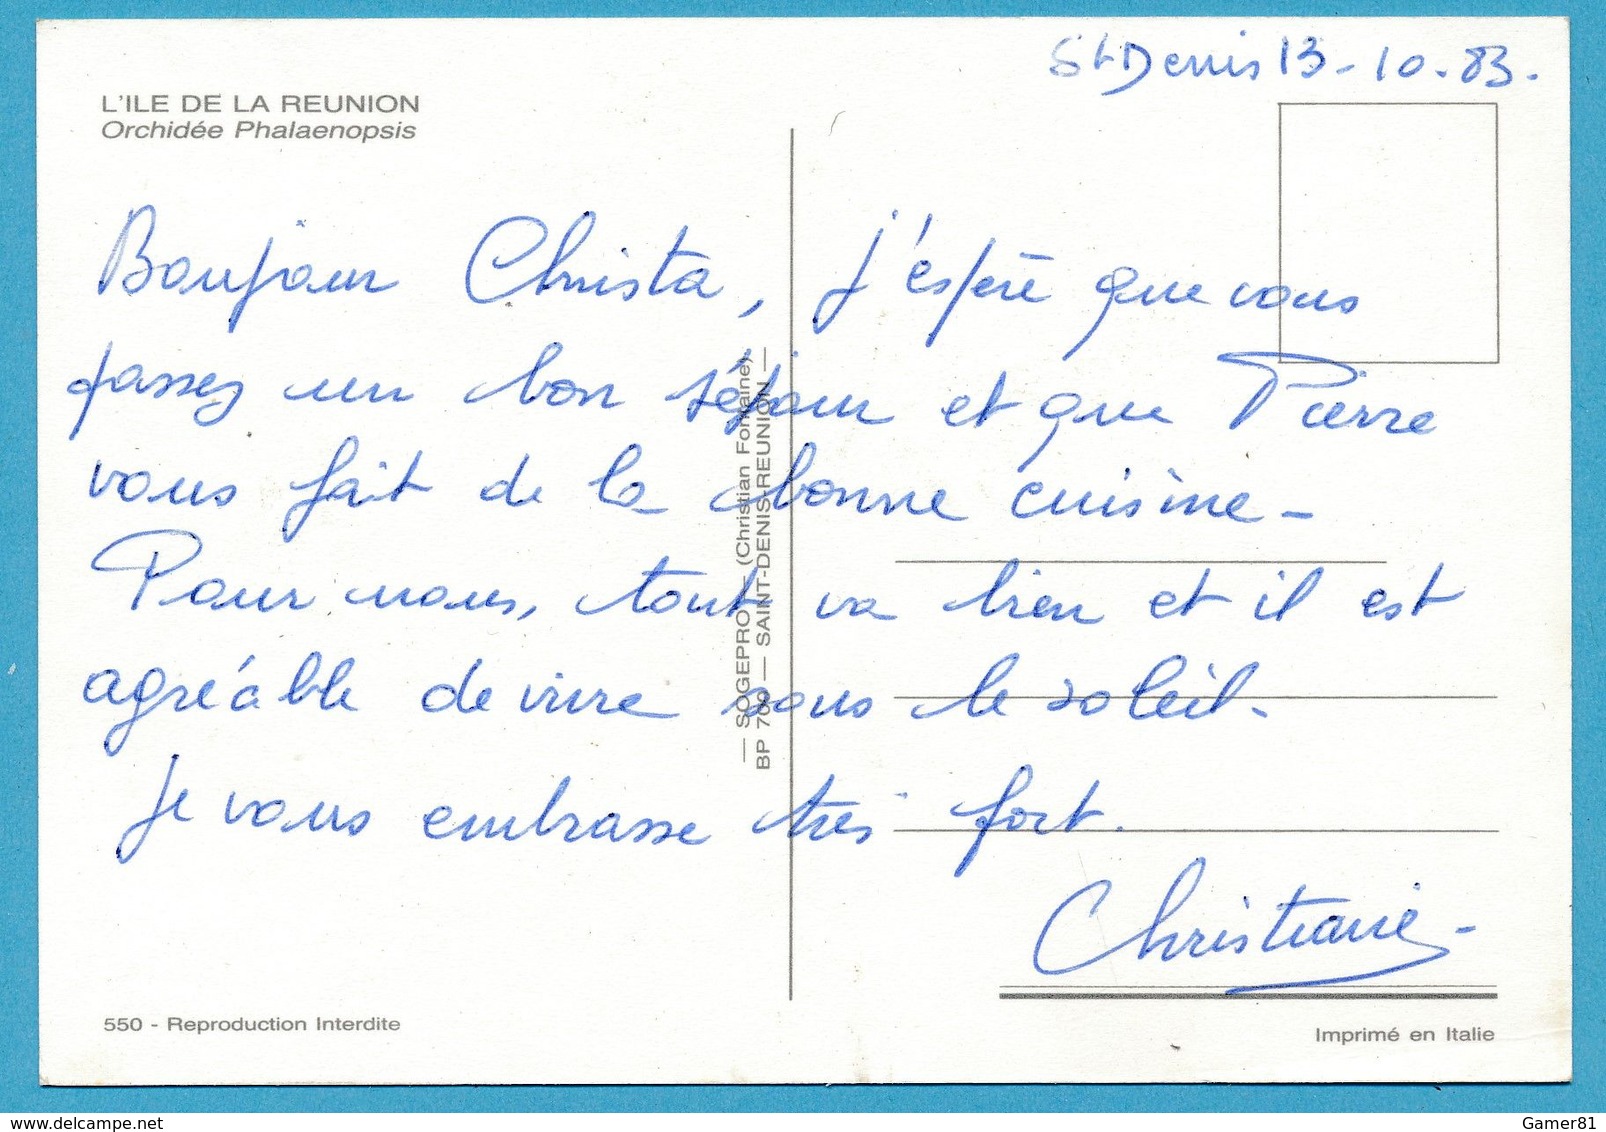 St Denis 13-10-83.
L'ILE DE LA REUNION
Orchidée Phalaenopsis
Bonjour Christa, j'espère que vous
passez un bon séjour et que Pierre
vous fait de la bonne cuisine-
Pour nous, tout va bien et il est
agréable de vivre sous le soleil-
Je vous embrasse très fort.
Christiane-
— SOGEPRO — (Christian Fontaine)
BP 700 — SAINT-DENIS-REUNION —
550 - Reproduction Interdite
Imprimé en Italie
delcampe.net
Gamer81